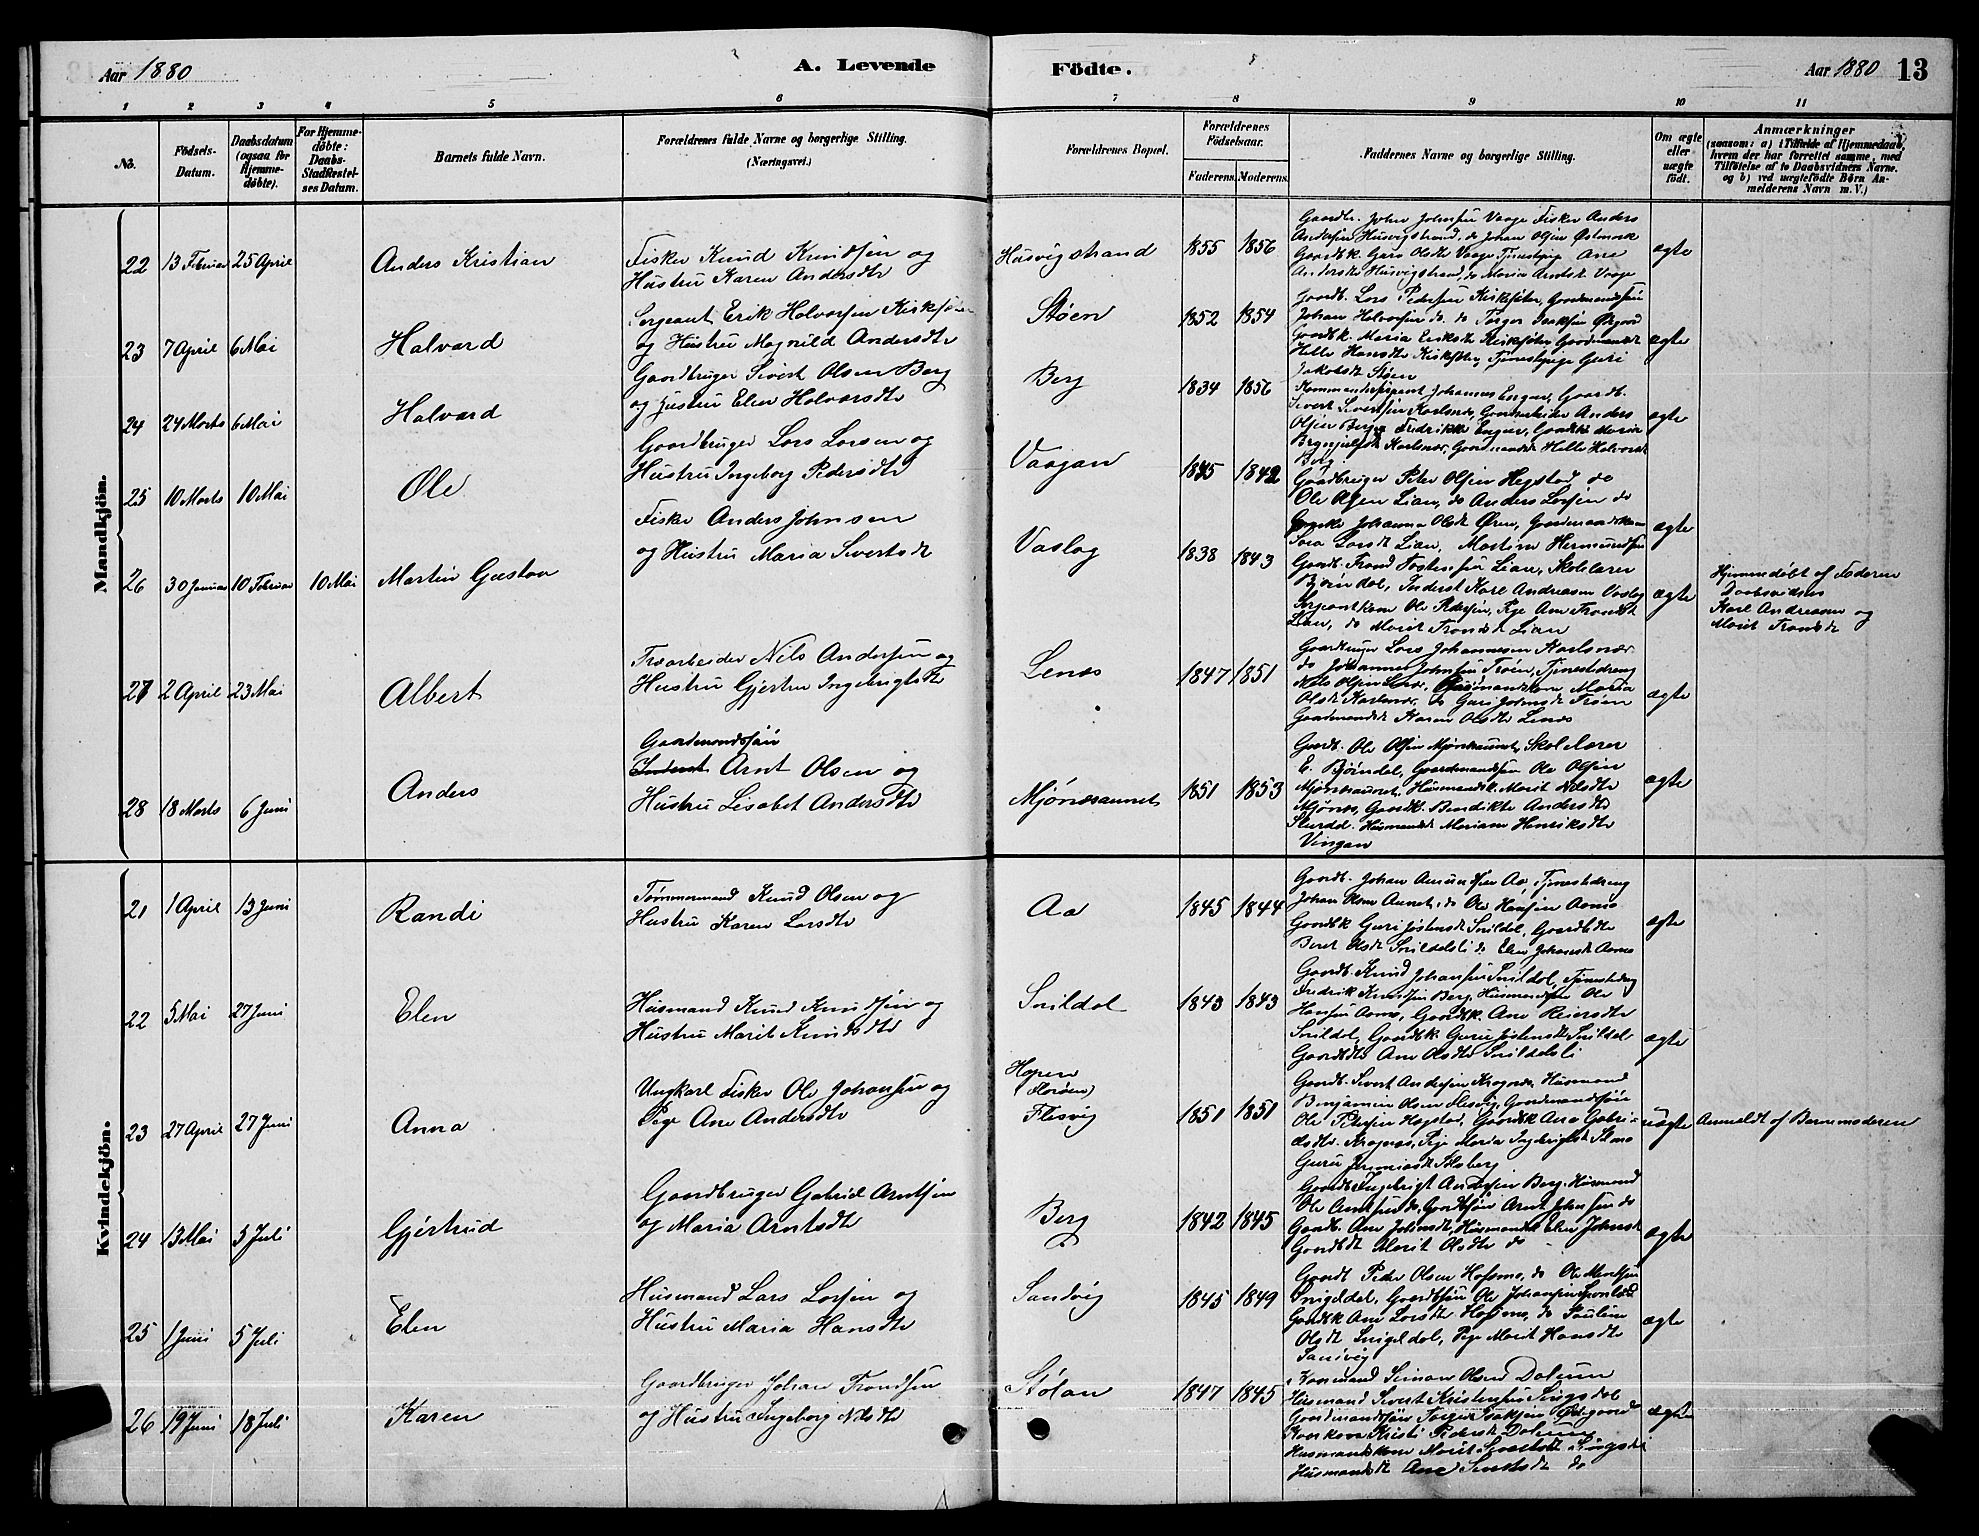 Aar 1880
A. Levende
Födte.
Aar 1880
13
1 2 3 4 5 6 7 8 9 10 11
No.
Födsels-
Datum.
Daabsdatum
(ogsaa for
Hjemme-
døbte).
For Hjemme-
døbte:
Daabs-
Stadfæstel-
ses Datum.
Barnets fulde Navn.
Forældrenes fulde Navne og borgerlige Stilling.
(Næringsvei.)
Forældrenes Bopæl.
Forældrenes
Födselsaar.
Faderens. Moderens.
Faddernes Navne og borgerlige Stilling.
Om ægte
eller
uægte
født.
Anmærkninger
(saasom: a) i Tilfælde af Hjemmedaab,
hvem der har forrettet samme, med
Tilföielse af to Daabsvidners Navne.
og b) ved uægtefødte Børn An-
melderens Navn m. V.)
Mandkjön.
22 13 Februar 25 April
Anders Kristian
Fisker Knud Knudsen og
Hustru Karen Andersdtr
Husvigstrand
1855 1856
Gaardbr. John Johnsen Vaage Fisker Anders
Andersen Husvigstrand, do Johan Olsen Østmark
Gaardbk. Guru Olsdt Vaage Tjenestepige Ane
Andersdt Husvigstrand, do Maria Arntsdt Vaage
ægte
23 7 April 6 Mai
Halvard
Sergeant Erik Halvorsen
og Hustru Magnild Andersdtr
Støen
1852 1854
Gaardb. Lars Pedersen
Johan Halvorsen do. do
Gaardbk. Maria Eriksdt
Helle Hansdt
Jakobsdt Støen
ægte
24 24 Marts 6 Mai
Halvard
Gaardbruger Sivert Olsen Berg
og Hustru Elen Halvorsdtr
Berg
1834 1856
Sivert Sivertsen Karlsnes, Gaardarbeider Anders
Olsen Berg, Fredrikke
Karlsnes, Gaardmandsdt Helle Halvorsdt
Berg
ægte
25 10 Marts 10 Mai
Ole
Gaardbruger Lars Larsen og
Hustru Ingeborg Pedersdtr
Vaagan
1845 1842
Gaardbruger Peter Olsen Hegstad do
Ole Olsen Lian, do Anders Larsen do
Johanna Olsdt Øren,
Sara Larsdt Lian,
ægte
26 30 Januar 10 Februar 10 Mai
Martin Gustav
Fisker Anders Johnsen
og Hustru Maria Sivertsdt
Vaslag
1838 1843
Martin Hermundsen
Gaardb. Trond Tostensen Lian, Skolelærer
Bjøndal, Inderst Karl Andreasen Vaslag
Sergeantkone Ole Pedersen, Pige Ane Trondsdt
Lian, do Marit Trondsdt Lian
ægte
Hjemmedøbt af Faderen
Daabsvidner
Karl Andreasen og
Marit Trondsdt
27 2 April 23 Mai
Albert
Træarbeider Nils Andersen og
Hustru Gjertru Ingebrigtsdtr
Lenæs
1847 1851
Gaardbruger Lars Johannessen Karlsnes
do Johannes Johnsen Trøen, Tjenestedreng
Nils Olsen Maria
Olsdt Karlsnes, do Guru Johnsdt Trøen
Gaardmandsdt Karen Olsdtr Lenæs
ægte
28 18 Marts 6 Juni
Anders
Gaardmandssøn
Inderst Arnt Olsen og
Hustru Lisabet Andersdtr
Mjønesaunet
1851 1853
Gaardb. Ole Olsen Mjønesaunet, Skolelærer
E. Bjøndal, Gaardmandssøn Ole Olsen
Mjønesaunet, Husmandsk. Marit Nilsdtr
Mjønes, Gaardk. Bendikte Andersdtr
Husmandsdt Mariane Henriksdtr
Vingan
ægte
Kvindekjön.
21 1 April 13 Juni
Randi
Tømmermand Knud Olsen og
Hustru Karen Larsdtr
Aa
1845 1844
Gaardb. Johan Amundsen Aa, Tjenestedreng
Johan Olsen Aunet, do Ole Hansen Aamo
Gaardbk Guri Jostensdt Snildal, Gaardbdtr
Beret Olsdt Snildalsli do Elen Johansdt Aamo
ægte
22 5 Mai 27 Juni
Elen
Husmand Knud Knudsen og
Hustru Marit Knudsdtr
Snildal
1843 1843
Gaardb. Knud Johansen Snildal, Tjenestedreng
Fredrik Knudsen Berg, Husmandssøn Ole
Hansen Aamo, Gaardbk. Ane Reiersdtr
Snildal, Gaardbk. Guru Jostensdt Snildal
Gaardbdtr Ane Olsdtr Snildalsli
ægte
23 27 April 27 Juni
Anna
Ungkarl Fisker Ole Johansen og
Pige Ane Andersdtr
Hopen
Flesvig
1851 1851
Gaardb. Sivert Andersen Kragnæs, Husmand
Benjamin Olsen Flesvig, Gaardmandssøn
Ole Pedersen Hegstad, Gaardbk Ane Gabri-
elsdtr. Kragnæs, Pige Maria Ingebrigtsdt
Guru Jeremiasdt Selsberg
uægte
Anmeldt af Barnemoderen
24 13 Mai 5 Juli
Gjertrud
Gaardbruger Gabriel Arntsen
og Maria Arntsdtr
Berg
1842 1845
Gaardb. Ingebrigt Andersen Berg, Husmand
Ole Arntsen do, Gaardbsøn Arnt Johnsen do
Gaardb. Ane Johnsdt, Husmandsdt Elen Johnsdt
Gaardbdt Marit Olsdtr do
ægte
25 1 Juni 5 Juli
Elen
Husmand Lars Larsen og
Hustru Maria Hansdtr
Sandvig
1845 1849
Gaardb Peder Olsen Hofsmo, do Ole
Snigeldal, Gaardbsøn Ole Johansen Snildal
Gaardbk Ane Larsdtr Hofsmo, do Pauline
Olsdt Snigeldal, Pige Marit Hansdtr
Sandvig
ægte
26 19 Juni 18 Juli
Karen
Gaardbruger Johan Trondsen
og Hustru Ingeborg Nilsdtr
Stølan
1847 1845
Simon Olsen Dalum
Husmand Sivert Kristensen Singsdal
Gaardmandssøn Torger Isaksen Ødegaard
Kristi Pedersdt Dalum
Husmandskone Marit Sivertsdt Singsdal
Husmandsdt Ane Sivertsdt do
ægte